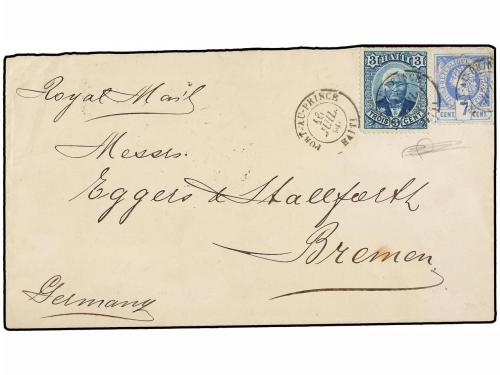 Royal Mail
3 HAITI 3
TROIS 3 CENT
7
CENT
PORT-AU-PRINCE
HAITI
Messrs.
Eggers & Stallforth
Bremen
Germany